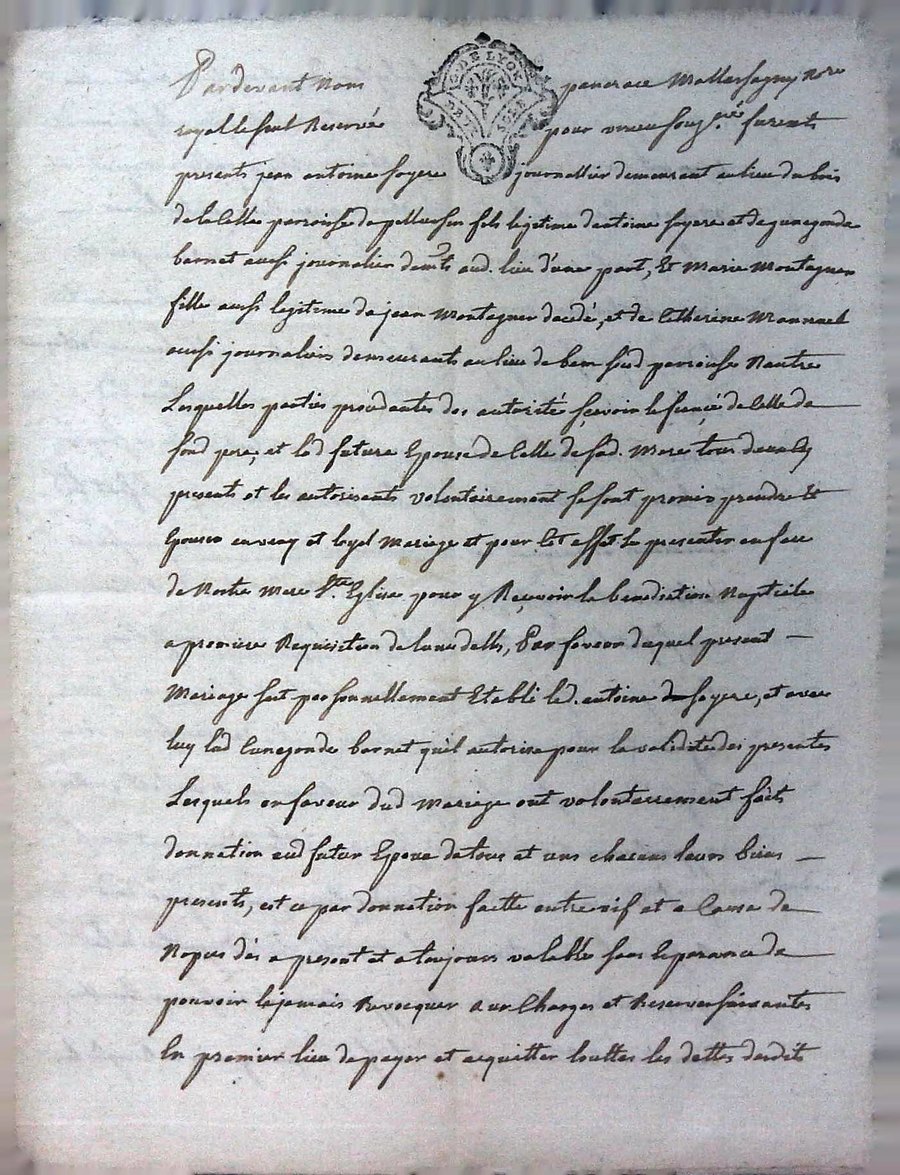 Pardevant Nous pancrace Mallassagny No.re
G. DE LYON
royal le seul Reservée pour soussigné furent
presents jean antoine foyere journallier demeurant au lieu du bois
de la Celle parroisse de fils legitime dantoine foyere et de gunegonde
barnet aussi journalier dem.ts aud. lieu d'une part, Et Marie Montagner
fille aussi legitime de jean Montagner decedé, et de Catherine
aussi journaliers demeurants au lieu de parroisse
Lesquelles parties procedantes des autorité sçavoir le fiancé de Celle de
sond pere, et lad future Epouse de Celle de sad. Mere tous deux Cy
presents et les autorisants volontairement se sont promis prendre Et
Epouser en vray et loyal Mariage et pour Cet effet se presenter en face
de Nostre Mere S.te Eglise pour y Reçevoir la benediction Nuptiale
a premiere Requisition de lune delle, En faveur duquel present
Mariage sait personnellement Etabli led. antoine foyere, et avec
luy lad Cunegonde barnet quil autorise pour la validité des presentes
Lesquels en faveur dud Mariage ont volontairement faits
donnation aud futur Epoux de tous et uns chacuns leurs biens
presents, est ce par donnation faitte entre vif et a Cause de
Nopces dès a present et a toujours valable sans Esperance de
pouvoir la jamais Revocquer aux Charges et Reserves suivantes
En premier lieu de payer et acquitter touttes les dettes desdits